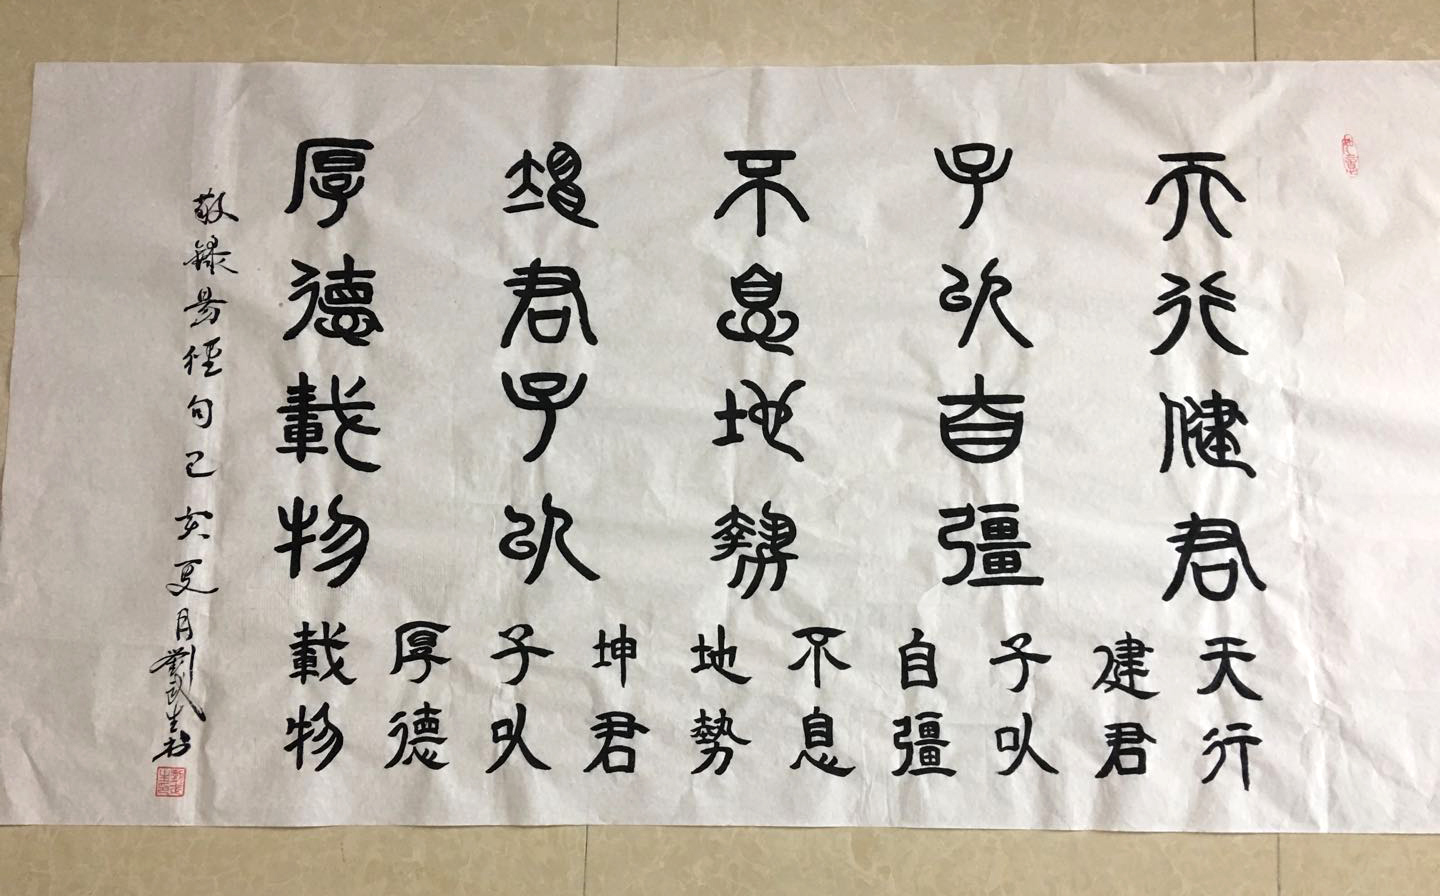 天行健君
子以自彊
不息地勢
坤君子以
厚德載物
天行
建君
子以
自彊
不息
地勢
坤君
子以
厚德
載物
敬錄易經句己亥夏月劉武生书